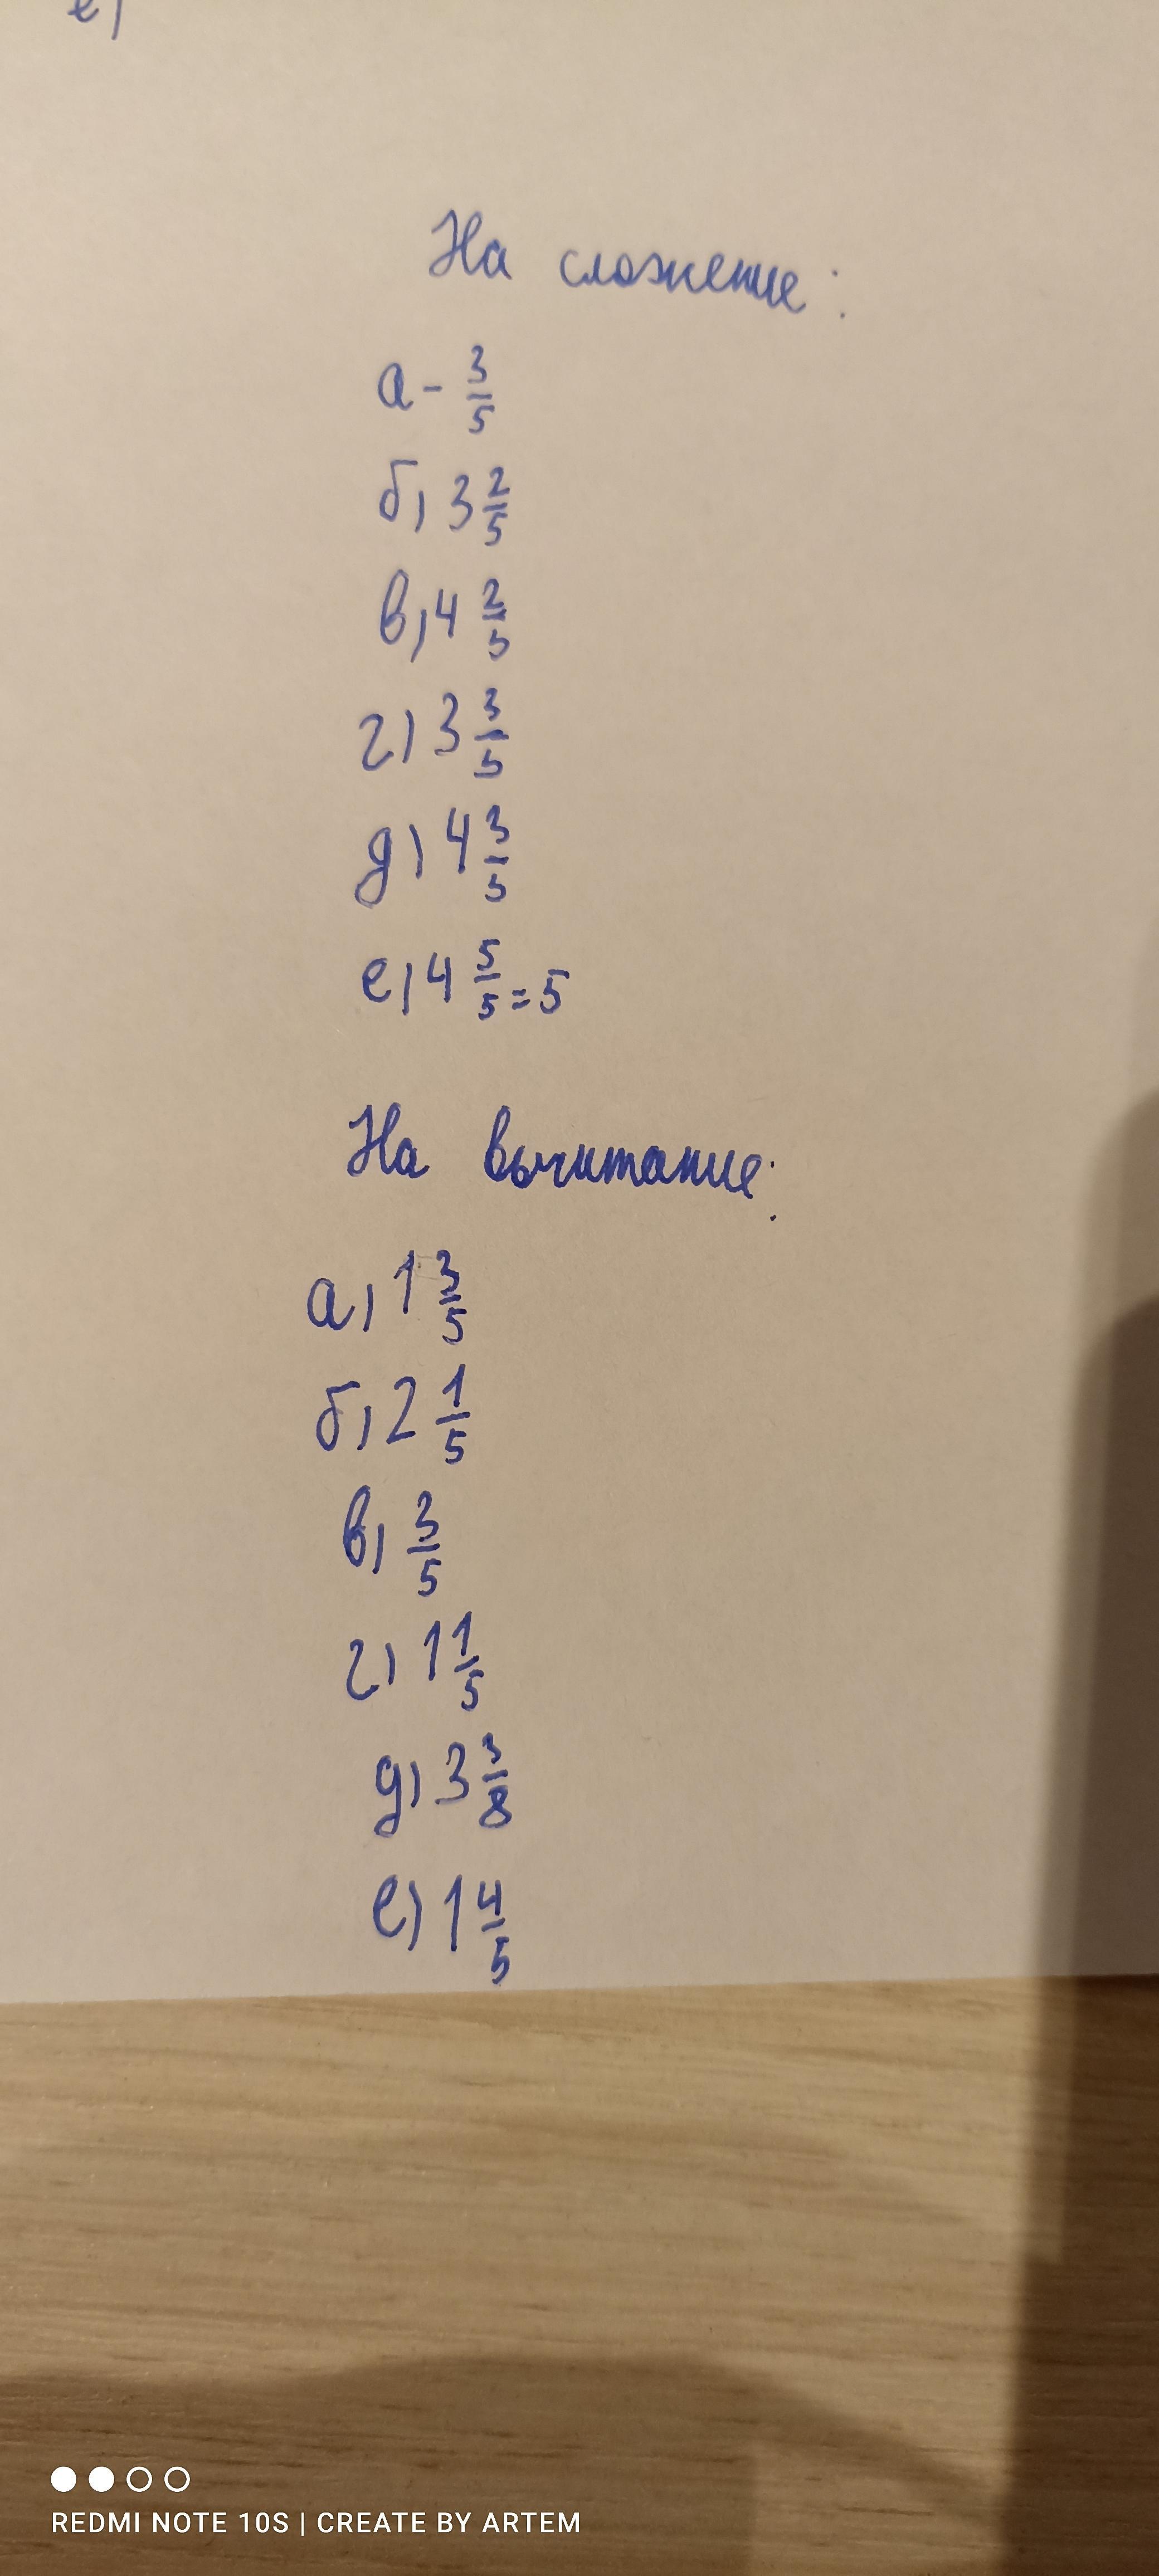 е)
На сложение:
а - 3/5
б) 3 2/5
в) 4 2/5
г) 3 3/5
д) 4 3/5
е) 4 5/5 = 5
На вычитание:
а) 1 3/5
б) 2 1/5
в) 3/5
г) 1 1/5
д) 3 3/8
е) 1 4/5
REDMI NOTE 10S | CREATE BY ARTEM